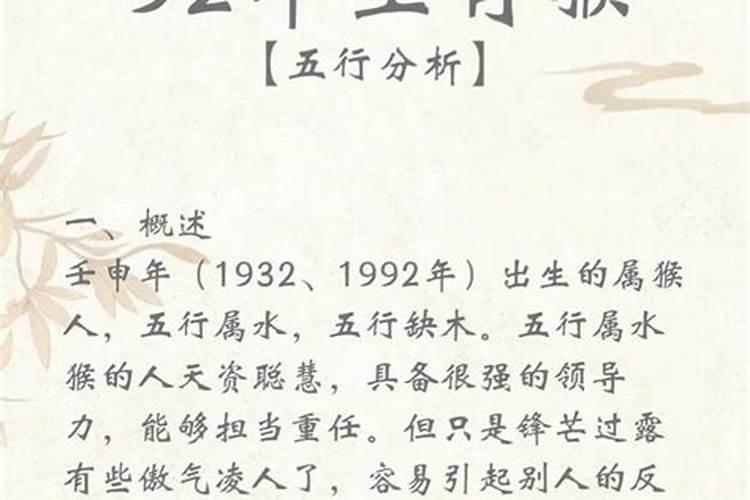 92年生肖猴
【五行分析】
一、概述
壬申年（1932、1992年）出生的属猴
人，五行属水，五行缺木。五行属水
猴的人天资聪慧，具备很强的领导
力，能够担当重任。但只是锋芒过露
有些傲气凌人了，容易引起别人的反